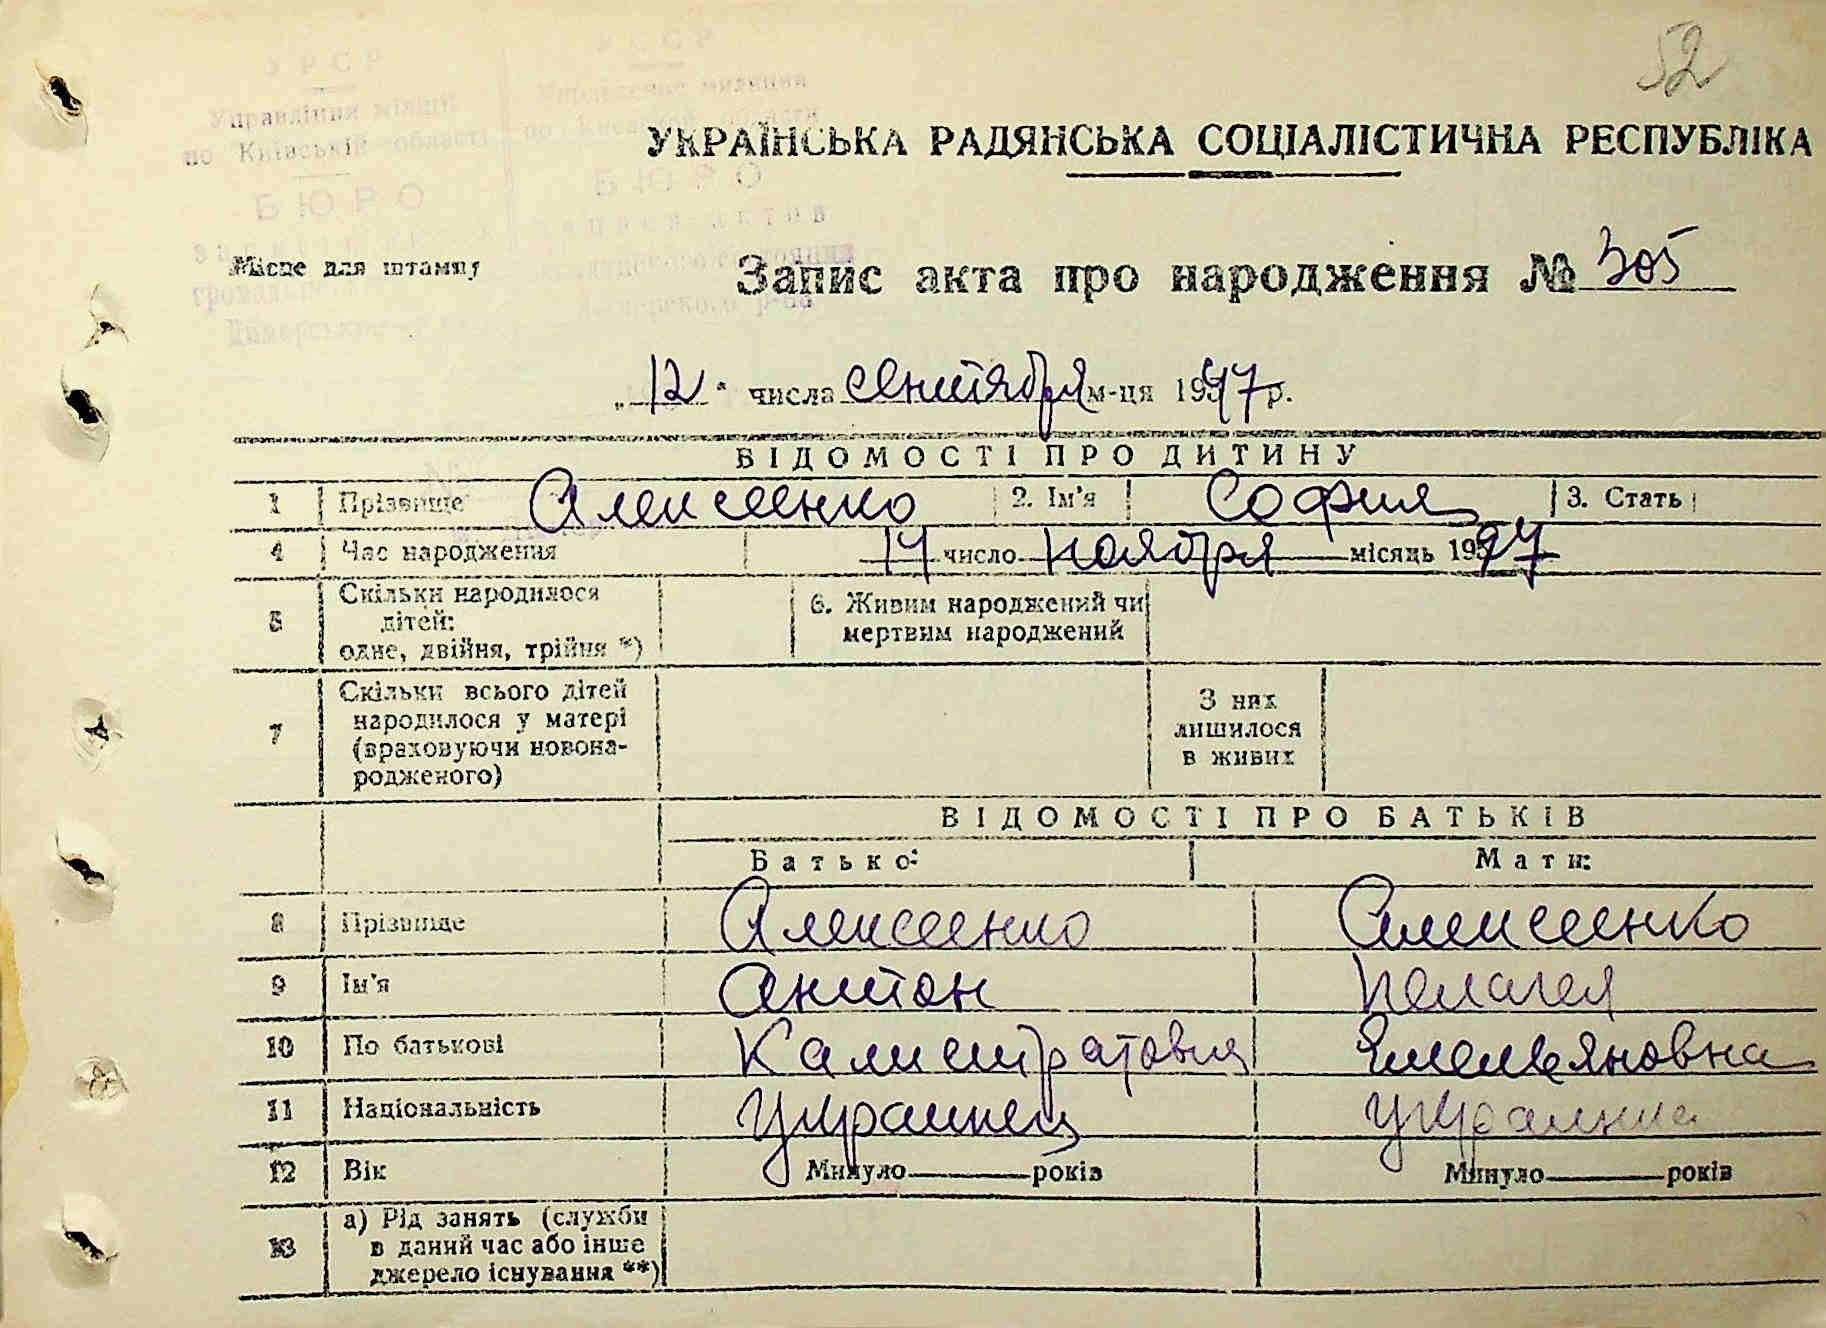 52
УРСР
Управління міліції
по Київській області
БЮРО
УССР
Управление милиции
по Киевской области
БЮРО
записи актов
гражданского состояния
Дымерского р-на
УКРАЇНСЬКА РАДЯНСЬКА СОЦІАЛІСТИЧНА РЕСПУБЛІКА
Місце для штампу
Запис акта про народження № 305
„12" числа сентября м-ця 1947 р.
ВІДОМОСТІ ПРО ДИТИНУ
1 Прізвище Алексеенко 2. Ім'я София 3. Стать
4 Час народження 14 число ноября місяць 1927
5 Скільки народилося
дітей:
одне, двійня, трійня *)
6. Живим народжений чи
мертвим народжений
7 Скільки всього дітей
народилося у матері
(враховуючи новона-
родженого)
З них
лишилося
в живих
ВІДОМОСТІ ПРО БАТЬКІВ
Батько: Мати:
8 Прізвище Алексеенко Алексеенко
9 Ім'я Антон Пелагея
10 По батькові Калистратович Емельяновна
11 Національність Украинец Украинка
12 Вік Минуло років Минуло років
13 а) Рід занять (служби
в даний час або інше
джерело існування **)